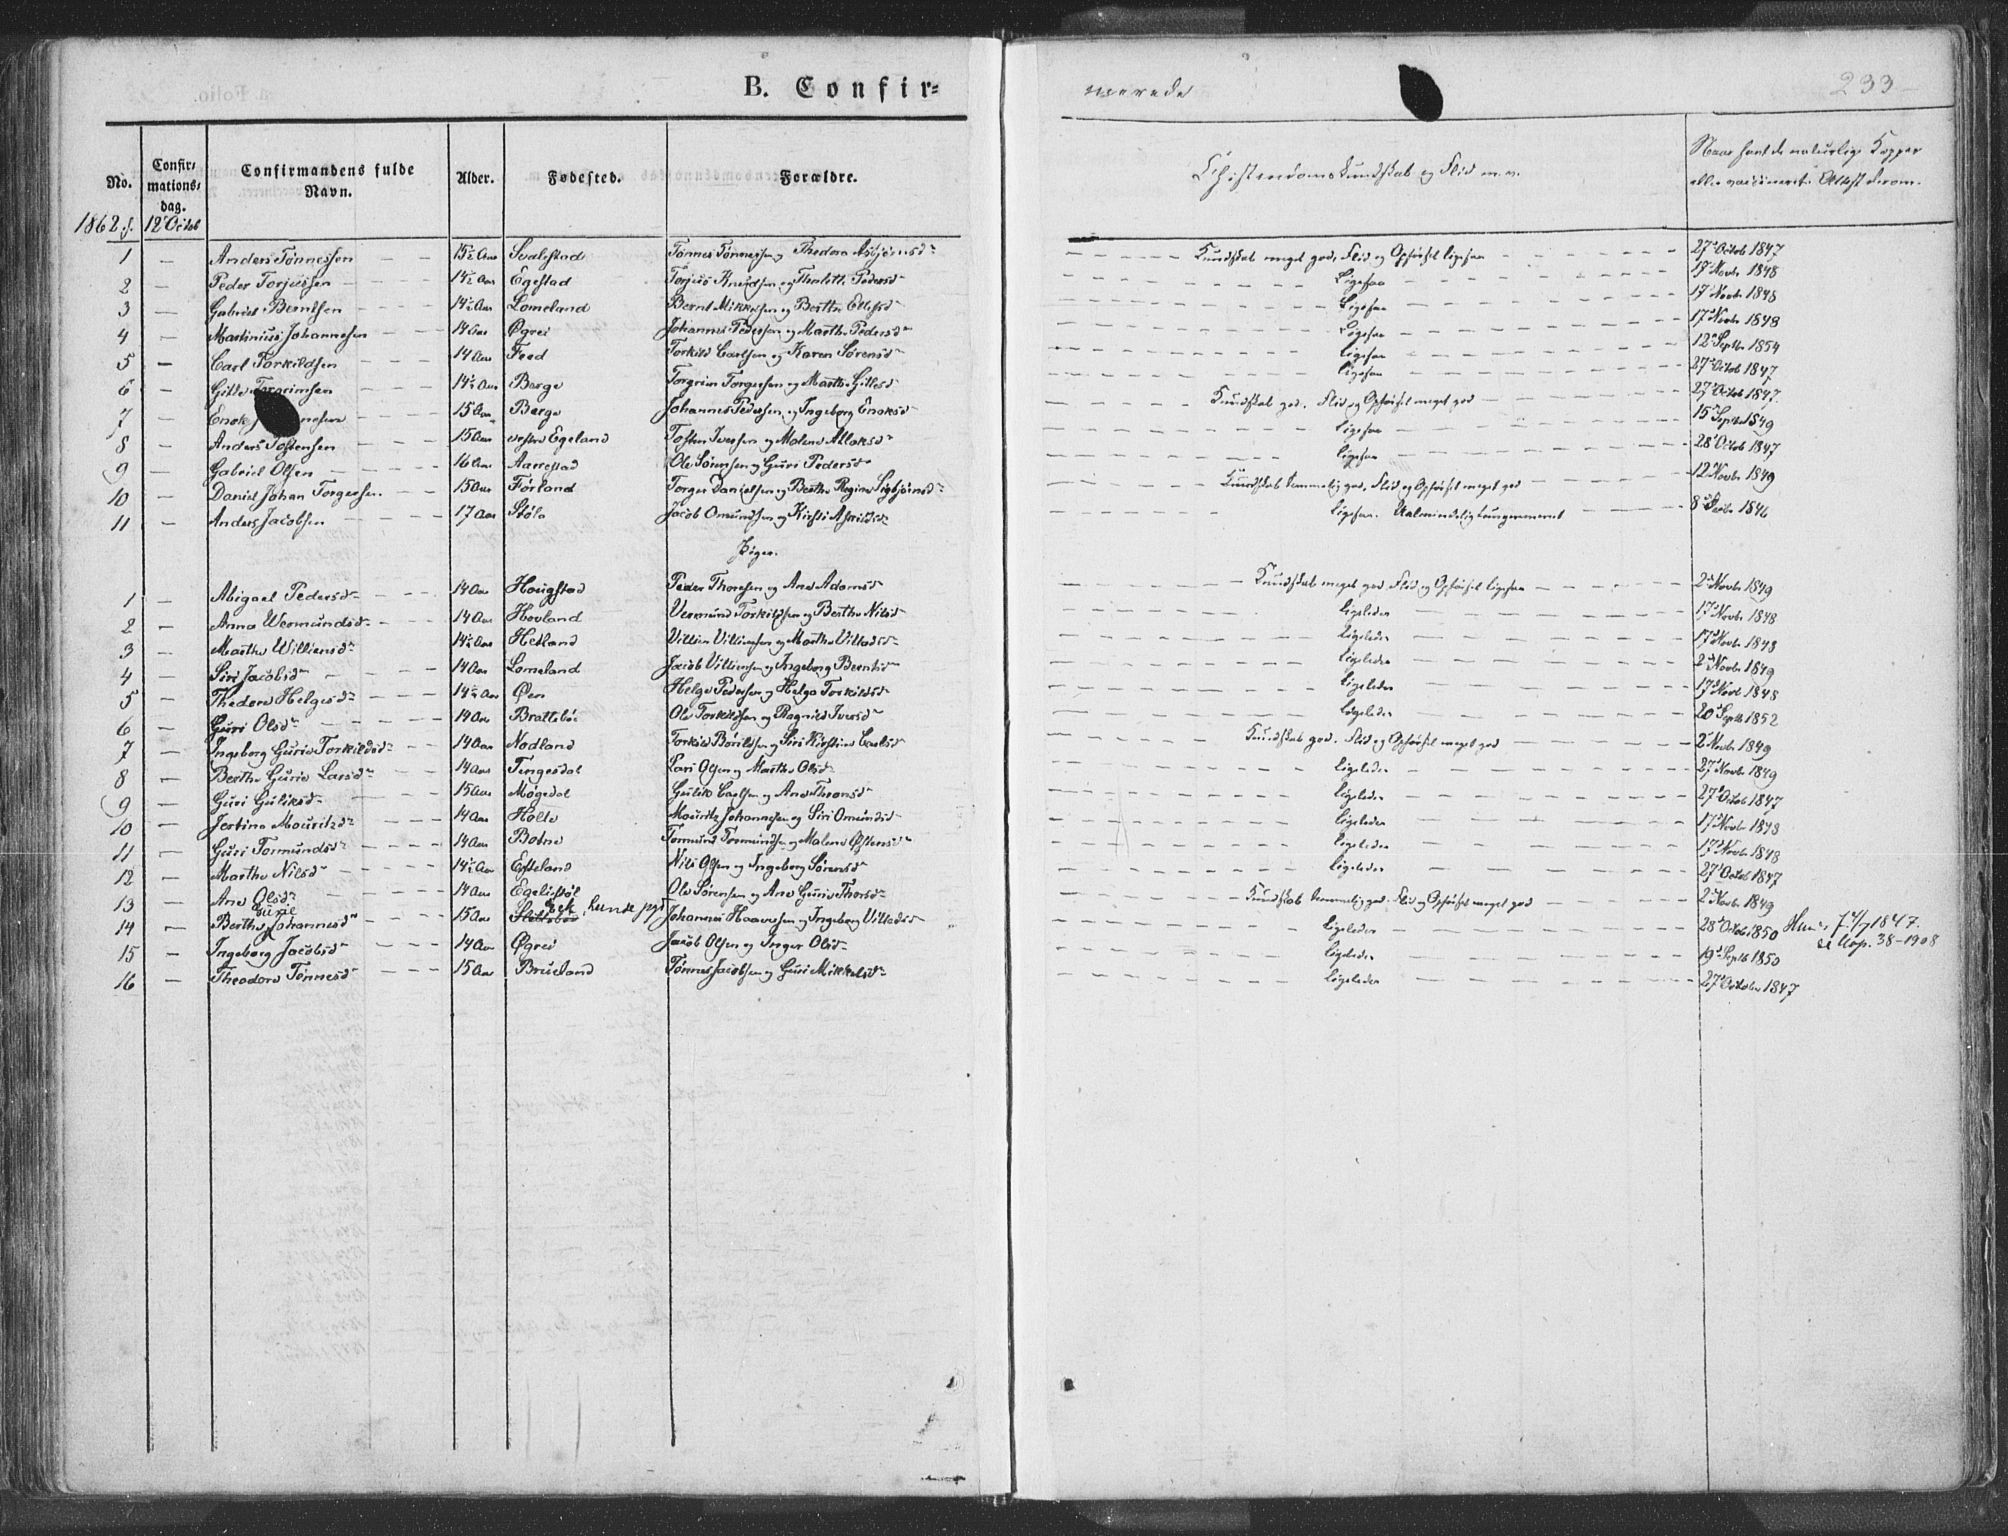 B. Confir=
merede
233
No.
Confir-
mations-
dag.
Confirmandens fulde
Navn.
Alder.
Fødested.
Forældre.
Christendomskundskab og Flid m. v.
Naar havt de naturlige Kopper
eller vaccineret. Attest derom.
1862. 12te Octob
1 — Anders Tønnessen — — 15½ Aar Svalestad Tønnes Tønnessen og Thedora Asbjørnsd. Kundskab meget god, Flid og Opførsel ligesaa 27 Octob 1847
2 — Peder Torjussen — — 14½ Aar Egestad Torjus Knudsen og Pedersd Ligesaa 17 Novb 1848
3 — Gabriel Berntsen — — 14½ Aar Lomeland Bernt Mikkelsen og Berthe Ellefsd Ligesaa 17 Novb 1848
4 — Martinius Johannesen 14 Aar Øgrei Johannes Pedersen og Marthe Pedersd Ligesaa 17 Novb 1848
5 — Carl Torkildsen 14 Aar Feed Torkild Carlsen og Karen Sørensd Ligesaa 12 Septb 1854
6 — Gitle Torgrimsen — — 14½ Aar Berge Torgrim Torgersen og Marthe Gitlesd Ligesaa 27 Octob 1847
7 — Enok 15 Aar Berge Johannes Pedersen og Ingeborg Enoksd Kundskab god. Flid og Opførsel meget god 27 Octob 1847.
8 — Anders Tostensen 15 Aar vestre Egeland Tosten Iversen og Malene Atlaksd Ligesaa 15 Septb 1849
9 — Gabriel Olsen — — 16 Aar Aarrestad Ole Sørensen og Guri Pedersd Ligesaa 28 Octob 1847
10 — Daniel Johan Torgersen — — 15 Aar Førland Torger Danielsen og Berthe Regine Sigbjørnsd Kundskab temmelig god, Flid og Opførsel meget god 12 Novb 1849
11 — Anders Jacobsen — — 17 Aar Støle Jacob Omundsen og Kirsti Asvildsd Ligesaa. 8 1846
Piger.
1 — Abigael Pedersd — 14 Aar Hougstad Peder Thoresen og Ane Adamsd Kundskab meget god Flid og Opførsel ligesaa 2 Novb 1849
2 — Anna Wermundsd — 14 Aar Hovland Vermund Torkildsen og Berthe Nilsd Ligeledes 17 Novb 1848
3 — Marthe Williemsd 14½ Aar Hetland Villiem Villiemsen og Marthe Villadsd Ligeledes 17 Novb 1848
4 — Siri Jacobsd — 14 Aar Lomeland Jacob Villiemsen og Ingeborg Berntsd Ligeledes 2 Novb 1849
5 — Thedore Helgesd — 14½ Aar Øen Helge Pedersen og Helga Torkildsd Ligeledes 17 Novb 1848
6 — Guri Olsd — — 14 Aar Brattebøe Ole Torkildsen og Ragnild Iversd Ligeledes 20 Septb 1852
7 — Ingeborg Gurie Torkildsd — 14 Aar Nodland Torkild Børildsen og Siri Kirstine Carlsd Kundskab god. Flid og Opførsel meget god 2 Novb 1849
8 — Berthe Gurie Larsd — 14 Aar Tengesdal Lars Olsen og Marthe Olsd Ligeledes 27 Novb 1849
9 — Guri Guliksd — 15 Aar Møgedal Gulik Carlsen og Ane Thronsd Ligeledes 27 Octob 1847
10 — Jertine Mouritzd — 14 Aar Holte Mouritz Johannesen og Siri Omundsd Ligeledes 17 Novb 1848
11 — Guri Tormundsd — 14 Aar Botne Tormund Tormundsen og Malene Østensd Ligeledes 17 Novb 1848
12 — Marthe Nilsd — — 14½ Aar Efteland Nils Olsen og Ingeborg Sørensd Ligeledes 27 Octob 1847
13 — Ane Olsd — — 14 Aar Egelistøl Ole Sørensen og Ane Gurie Thorsd Kundskab temmelig god. Flid og Opførsel meget god 2 Novb 1849
Gurie
14 — Berthe Johannesd — 15 Aar Slettebøe Johannes Haavesen og Ingeborg Villadsd Ligeledes 28 Octob 1850 7/7 1847.
38-1908
15 — Ingeborg Jacobsd — 14 Aar Øgrei Jacob Olsen og Inger Olsd Ligeledes 19 Septb 1850
16 — Theodore Tønnesd — 15 Aar Brueland Tønnes Jacobsen og Guri Mikkelsd Ligeledes 27 October 1847